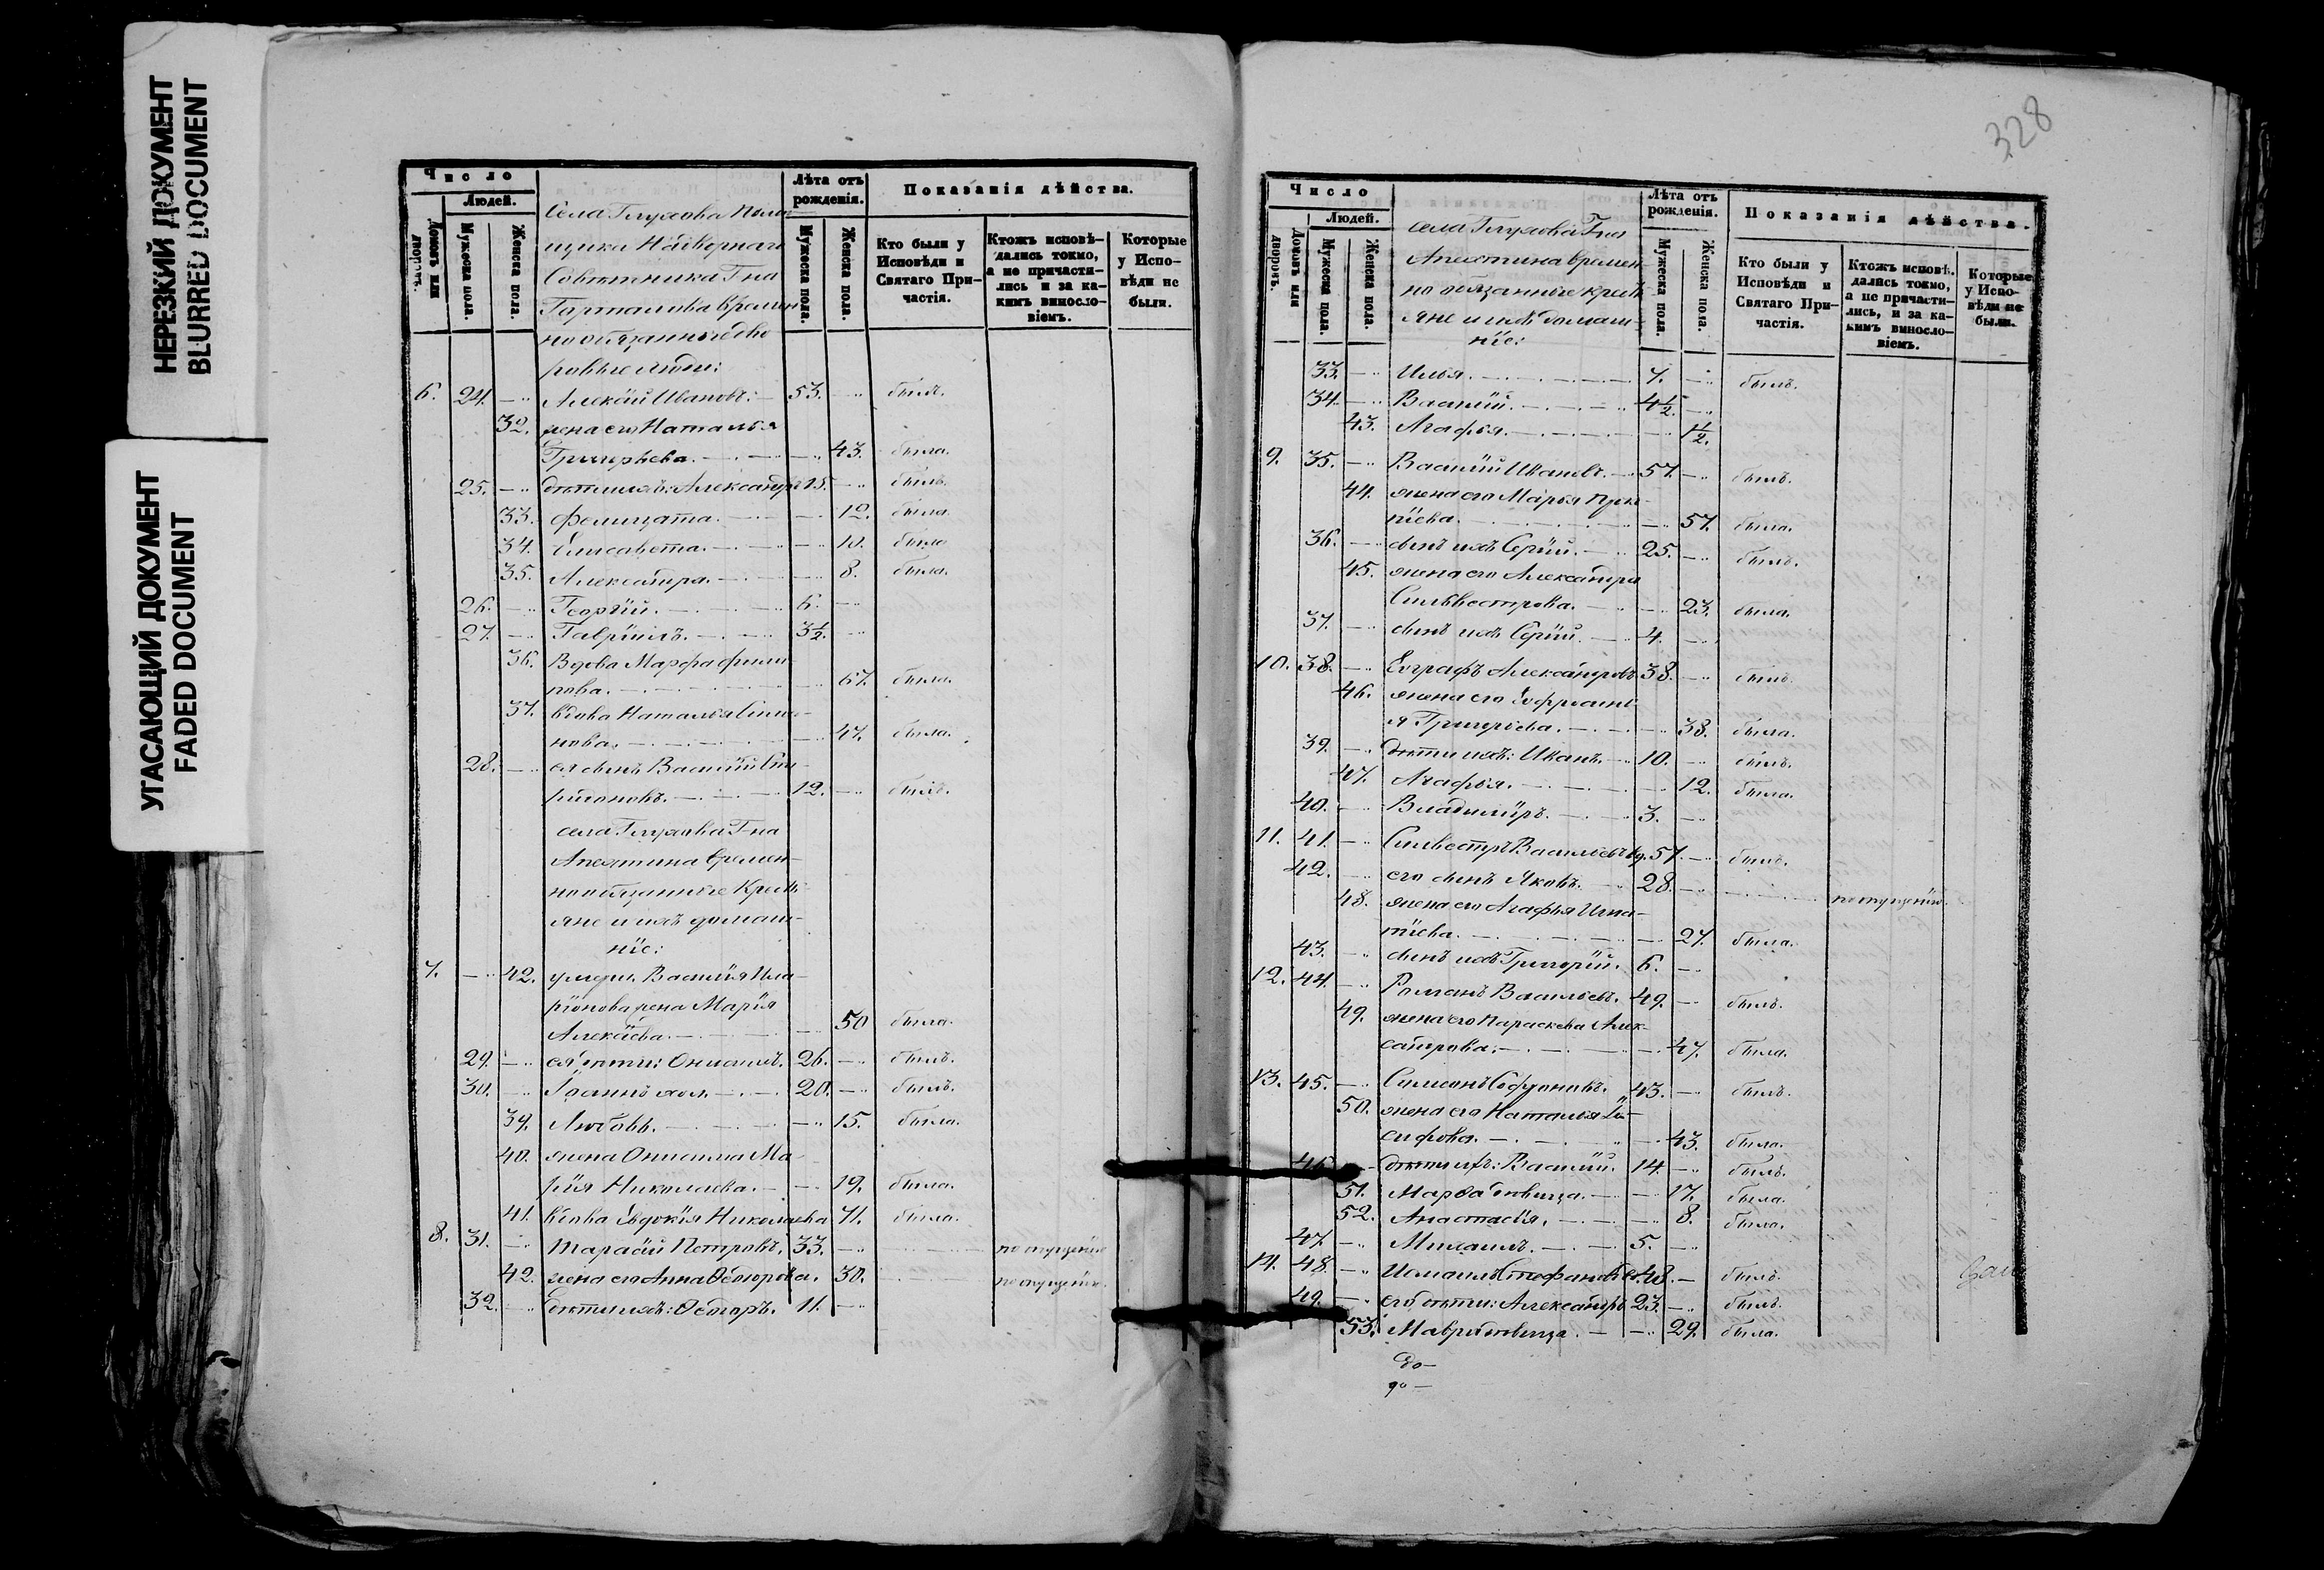 НЕРЕЗКИЙ ДОКУМЕНТ
BLURRED DOCUMENT
УГАСАЮЩИЙ ДОКУМЕНТ
FADED DOCUMENT
Число
Людей.
Домовъ или дворовъ.
Мужеска пола.
Женска пола.
Лѣта отъ рожденія.
Мужеска пола.
Женска пола.
Показанія дѣйства.
Кто были у Исповѣди и Святаго Причастія.
Ктожъ исповѣдались токмо, а не причастились и за какимъ винословіемъ.
Которые у Исповѣди не были.
Села Глухова
Совѣтника Г-на
времен-
но обязанные дво-
ровые люди:
6. 24. — Алексѣй Ивановъ. 53. — былъ.
32. жена его Наталья
Григорьева. — 43. была.
25. — дѣти ихъ: Александръ 15. — былъ.
33. Фелицата. — 12. была.
34. Елисавета. — 10. была
35. Александра. — 8. была.
26. — Георгій. — 6. —
27. — Гавріилъ. — 3½. —
36. Вдова Марфа
— 67. была.
37. вдова Наталья
— 47. была.
28. — ея сынъ Василій Спи-
ридоновъ. — 12. — былъ.
села Глухова Г-на
Апехтина времен-
но обязанные Кресть-
яне и ихъ домаш-
ніе:
7. — 42. Василія Ила-
ріонова жена Марія
Алексѣева. — 50 была.
29. — ея дѣти: Онисимъ. 26. — былъ.
30. — Іоаннъ хол. — 20. — былъ.
39. Любовь. — 15. была.
40. жена Онисима Ма-
рія Николаева. — 19. была.
41. вдова Евдокія Николаева 71. была.
8. 31. — Тарасій Петровъ. 33. — по опущенію
42. жена его Анна Ѳедорова. 30. по опущенію.
32. — дѣти ихъ: Ѳедоръ. 11. —
328
Число
Людей.
Домовъ или дворовъ.
Мужеска пола.
Женска пола.
Лѣта отъ рожденія.
Мужеска пола.
Женска пола.
Показанія дѣйства.
Кто были у Исповѣди и Святаго Причастія.
Ктожъ исповѣдались токмо, а не причастились, и за какимъ винословіемъ.
Которые у Исповѣди не были.
села Глухова Г-на
Апехтина времен-
но обязанные кресть-
яне и ихъ домаш-
ніе:
33. — Илья. — 7. — былъ.
34. — Василій. — 4½. —
43. Агафья. — 1½.
9. 35. — Василій Ивановъ. 57. — былъ.
44. жена его Марья Прко-
піева. — 57. была.
36. — сынъ ихъ Сергій. — 25. — былъ.
45. жена его Александра
Сильвестрова. — 23. была.
37. — сынъ ихъ Сергій. — 4. —
10. 38. — Евграфъ Александровъ 38. — былъ.
46. жена его Евфросинь-
я Григорьева. — 38. была.
39. — дѣти ихъ: Иванъ. 10. — былъ.
47. Агафья. — 12. была.
40. — Владиміръ. — 3. —
11. 41. — Сильвестръ Васильевъ вд. 57. — былъ.
42. — его сынъ Яковъ. 28. — по опущенію.
48. жена его Агафья Игна-
тіева. — 27. была.
43. — сынъ ихъ Григорій. 6. —
12. 44. — Романъ Васильевъ. 49. — былъ.
49. жена его Параскева Алек-
сандрова. — 47. была.
13. 45. — Симеонъ Софроновъ. 43. — былъ.
50. жена его Наталья Іо-
сифова. — 43. была.
46. — дѣти ихъ: Василій. 14. — былъ.
51. Марѳа дѣвица. — 17. была.
52. Анастасія. — 8. была.
47. — Михаилъ. — 5. —
14. 48. — Исмаилъ Стефановъ вд. 48. — былъ.
49. — его дѣти: Александръ 23. — былъ.
53. Мавра дѣвица. — 29. была.